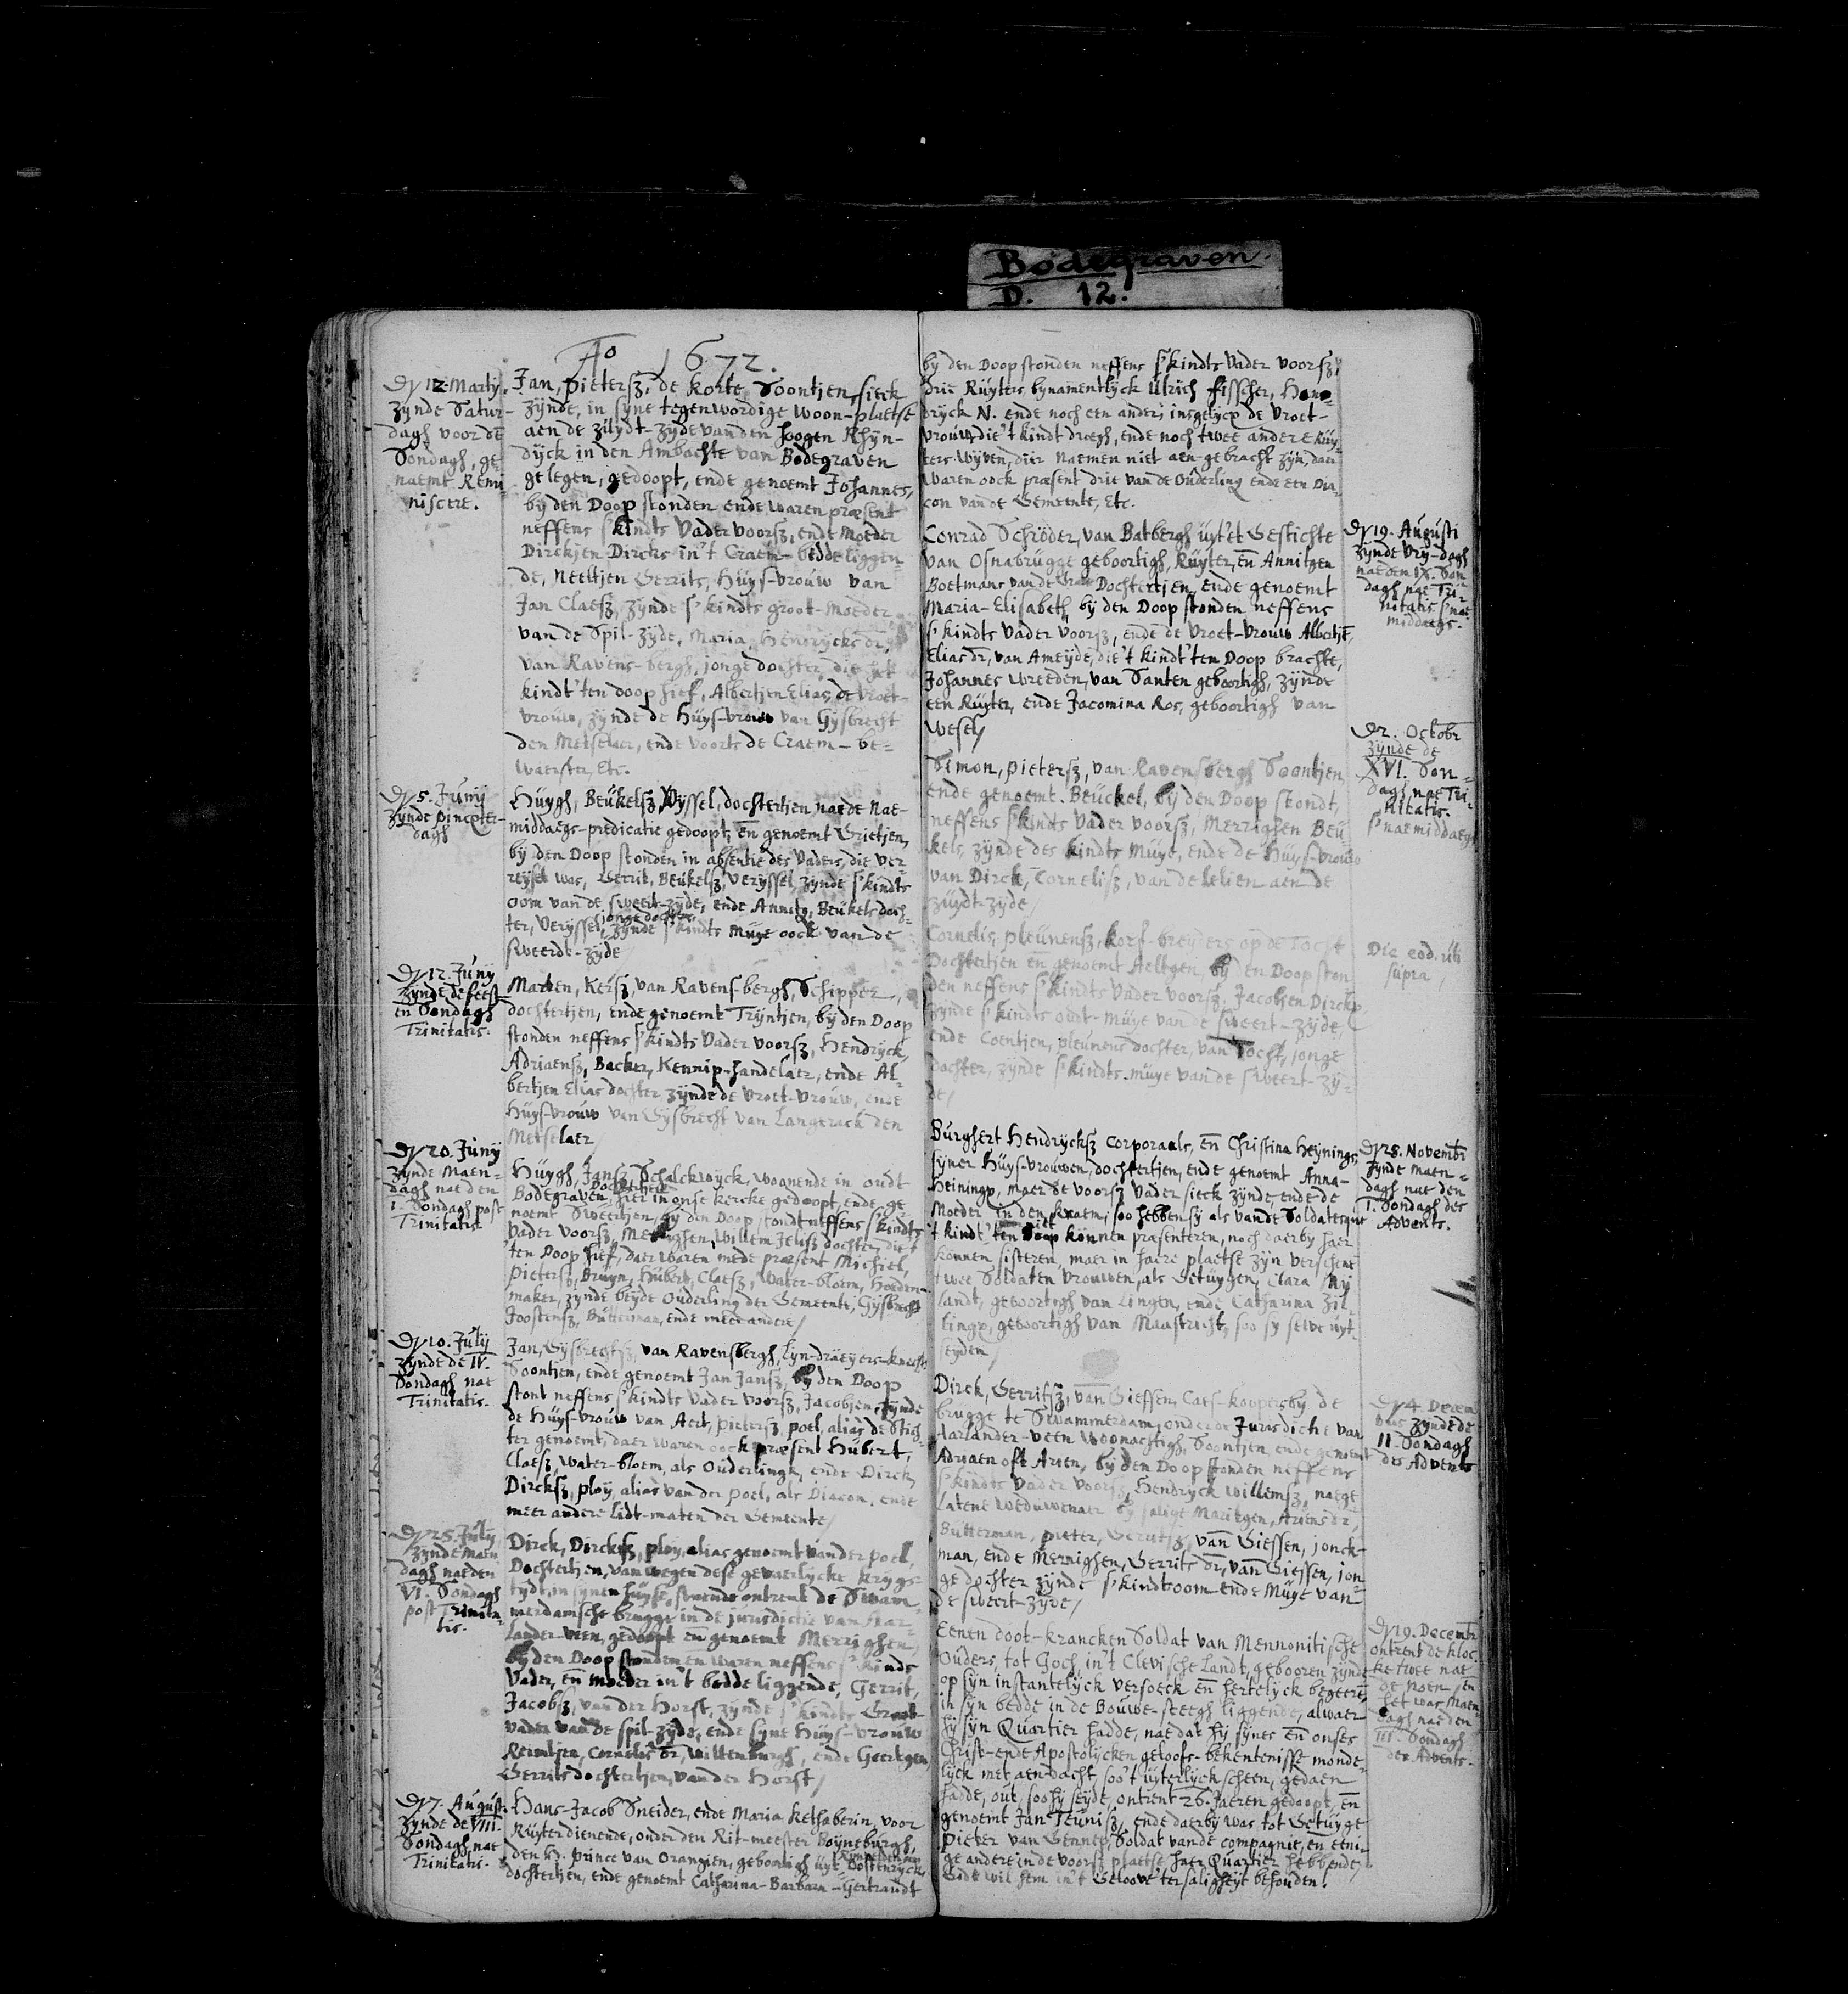 Bodegraven.
D. 12.
Ao 1672.
Dy 12. Martij,
zijnde Satur-
dagh voor de
Sondagh, ge-
naemt Remi-
niscere.
Jan, pietersz, de korte, Soontjen, sieck
zijnde, in syne tegenwordige woon-plaetse
aen de zuydt-zyde van den hoogen Rhijn-
dijck in den Ambachte van Bodegraven
gelegen, gedoopt, ende genoemt Johannes,
bij den Doop stonden ende waren præsent
neffens s'kindts Vader voorsz, ende Moeder
Dirckjen Dircks in't Craem-bedde liggen-
de, Neeltjen Gerrits, Huys-vrouw van
Jan Claesz, zynde s'kindts groot-Moeder
van de Spil-zyde, Maria Hendrycks dr,
van Ravens-bergh, jonge dochter, die het
kindt ten doop hief, Albertjen Elias, de vroet-
vrouw, zynde de Huys-vrouw van Gysbrecht
den Metselaer, ende voorts de Craem-be-
waerster, Etc.
Dy 5. Junij
zynde pincxter-
dagh
Huygh, Beukelsz, Vyssel, dochtertjen nae de Nae-
middaegs-predicatie gedoopt, en genoemt Grietjen,
bij den Doop stonden in absentie des Vaders, die ver-
reyst was, Gerrit, Beukelsz, Veryssel, zynde s'kindts
oom van de sweert-zyde, ende Annitg, Beukels doch-
ter, Veryssel, jonge dochter, zynde s'kindts Muye oock van de
sweerdt-zyde
Dy 12. Junij
zynde de feest
en Sondagh
Trinitatis.
Marten, Kersz, van Ravens-bergh, Schipper,
dochtertjen, ende genoemt Tryntjen, bij den Doop
stonden neffens s'kindts Vader voorsz, Hendryck,
Adriaensz, Backer, Kennip-handelaer, ende Al-
bertjen Elias dochter zynde de vroet-vrouw, ende
Huys-vrouw van Gysbrecht van Langerack den
Metselaer
Dy 20. Junij
zynde Maen-
dagh nae den
1. Sondagh post
Trinitatis.
Huygh, Jansz, Schalckwyck, woonende in oudt
Bodegraven, Dochtertjen hier in onse kercke gedoopt, ende ge-
noemt Sweertjen, bij den Doop stondt neffens s'kindts
Vader voorsz, Merrighen, Willem Jelisz dochter, die't
'ten Doop hief, daer waren mede præsent Michiel,
Pietersz, Bruyn, Hubert, Claesz, Water-bloem, Hoeden-
maker, zynde beyde Ouderling der Gemeente, Gysbrecht
Joostensz, Butterman, ende meer andere
Dy 10. July
zynde de IV.
Sondagh nae
Trinitatis.
Jan, Gysbrechtsz, van Ravensbergh, Lyn-draeyers-knechts
Soontjen, ende genoemt Jan Jansz, bij den Doop
stont neffens s'kindts Vader voorsz, Jacobjen, zynde
de Huys-vrouw van Aert, pietersz, poel, alias de Stich-
ter genoemt, daer waren oock præsent Hubert,
Claesz, Water-bloem, als Ouderlingh, ende Dirck,
Dircksz, ploy, alias van der poel, als Diacon, ende
meer andere Lidt-maten der Gemeente
Dy 25. July
zynde Maen-
dagh nae den
VI. Sondagh
post Trinita-
tis.
Dirck, Dircksz, ploy, alias genoemt van der poel,
Dochtertjen, van wegen dese gevaerlycke krygs-
tydt, in synen huyse, staende ontrent de Swam-
merdamsche brugge in de jurisdictie van Aar-
lander-veen, gedoopt en genoemt Merrighen,
bij den Doop stonden en waren neffens s'kinds
Vader, en moeder in't bedde liggende, Gerrit,
Jacobsz, van der Horst, zynde s'kindts Groot-
Vader van de spil-zyde, ende syne Huys-vrouw
Reimtjen, Cornelis dr, Wiltenburgh, ende Geertgen
Gerrits dochtertjen, van der Horst
Dy 7. August.
zynde de VIII.
Sondagh nae
Trinitatis.
Hans-Jacob Sneider, ende Maria Kethaberin, voor
Ruyter dienende, onder den Rit-meester Boyneburgh,
den hr. prince van Orangien, geboortigh uyt Oostenryck,
dochtertjen, ende genoemt Catharina-Barbara-Gertraudt
bij den Doop stonden neffens s'kindts Vader voorsz,
drie Ruyters bynamentlyck Ulrich fisscher, Hen-
dryck N. ende noch een ander, insgelycx de Vroet-
vrouw die't kindt droegh, ende noch twee andere Ruy-
ters-Wyven, dier naemen niet aen-gebracht zyn, daer
waren oock præsent drie van de Ouderling ende een Dia-
con van de Gemeente, Etc.
Conrad Schröder, van Batbergh uyt'et Gestichte
van Osnabrugge geboortigh, Ruyter, en Annitgen
Boetmans van de Dochtertjen, ende genoemt
Maria-Elisabeth, bij den Doop stonden neffens
s'kindts Vader voorsz, ende de Vroet-vrouw Albertje,
Elias dr, van Ameyde, die't kindt'ten Doop brachte,
Johannes Wreeden, van Santen geboortigh, zynde
een Ruyter, ende Jacomina Ros, geboortigh van
Wesel
Dy 19. Augusti
zynde Vry-dagh
nae den IX. Son-
dagh nae Tri-
nitatis, s'nae
middaegs.
Simon, pietersz, van Ravensbergh Soontjen
ende genoemt Beuckel, bij den Doop stondt,
neffens s'kindts Vader voorsz, Merrighen Beu-
kels, zynde des kindts Muye, ende de Huys-vrouw
van Dirck, Cornelisz, van de Lelien aen de
Zuydt-zyde
Dy 2. Octobr
zynde de
XVI. Son-
dagh nae Tri-
nitatis.
s'naemiddaegs
Cornelis, pleunensz, korf-breyders op de Tocht
Dochtertjen en genoemt Aeltgen, bij den Doop ston
den neffens s'kindts Vader voorsz. Jacobjen Dirckx
zynde s'kindts oudt-Muye van de sweert-zyde,
ende Coentjen, pleunens dochter, van Tocht, jonge
dochter, zynde s'kindts muye van de sweert-zy-
de
Die eod. uti
supra,
Burghert Hendrycksz Corporaals, en Christina Heynings,
syner Huys-vrouwen, dochtertjen, ende genoemt Anna-
Heiningx, maer de voorsz Vader sieck zynde, ende de
Moeder in den kraem, soo hebben sy als van de Soldatesque
't kindt 'ten Doop niet können præsenteren, noch daerby haer
können sisteren, maer in haere plaetse zyn verschene
twee Soldaten Vrouwen, als Getuygen, Clara Ny
landt, geboortigh van Lingen, ende Catharina Zil-
lingx, geboortigh van Maastricht, soo sy selve uyt-
seyden
Dy 28. Novembr
zynde Maen-
dagh nae den
I. Sondagh des
Advents.
Dirck, Gerritsz, van Gieffen, Caes-kooper by de
brugge te Swammerdam, onder de Jurisdictie van
Aarlander-veen Woonachtigh, Soontjen, ende genoemt
Adriaen oft Arien, bij den Doop stonden neffens
s'kindts Vader voorsz, Hendryck Willemsz, naege
latene Weduwenaer by salige Maritgen, Ariens dr,
Butterman, pieter, Gerritsz, van Giessen, jonck-
man, ende Merrighen, Gerrits dr, van Giessen, jon
ge dochter zynde s'kindts oom ende Muye van
de sweert-zyde
Dy 4. Decem
ber zynde de
II. Sondagh
des Advents
Eenen doot-krancken Soldat van Mennonitische
Ouders, tot Goch, in't Clevische Landt, gebooren zynde
op syn instantelyck versoeck en hertelyck begeeren,
in syn bedde in de Bouwe-steegh liggende, alwaer
hy syn Quartier hadde, nae dat hy synes en onses
Christ-ende Apostolycken geloofs-bekentenisse monde-
lyck met aendacht, soo't uyterlyck scheen, gedaen
hadde, out, soo hy seyde, ontrent 26. Jaeren gedoopt, en
genoemt Jan Teunisz, ende daerby was tot Getuyge
Pieter van Gennep, Soldat van de compagnie, en eeni-
ge andere in de voorsz plaetse haer Quartier hebbende
Godt wil hem in't Geloove 'ter saligheyt behouden!
Dy 19. Decembr
ontrent de kloc
ke twee nae
de Noen, en
het was Maen
dagh nae den
III. Sondagh
des Advents.